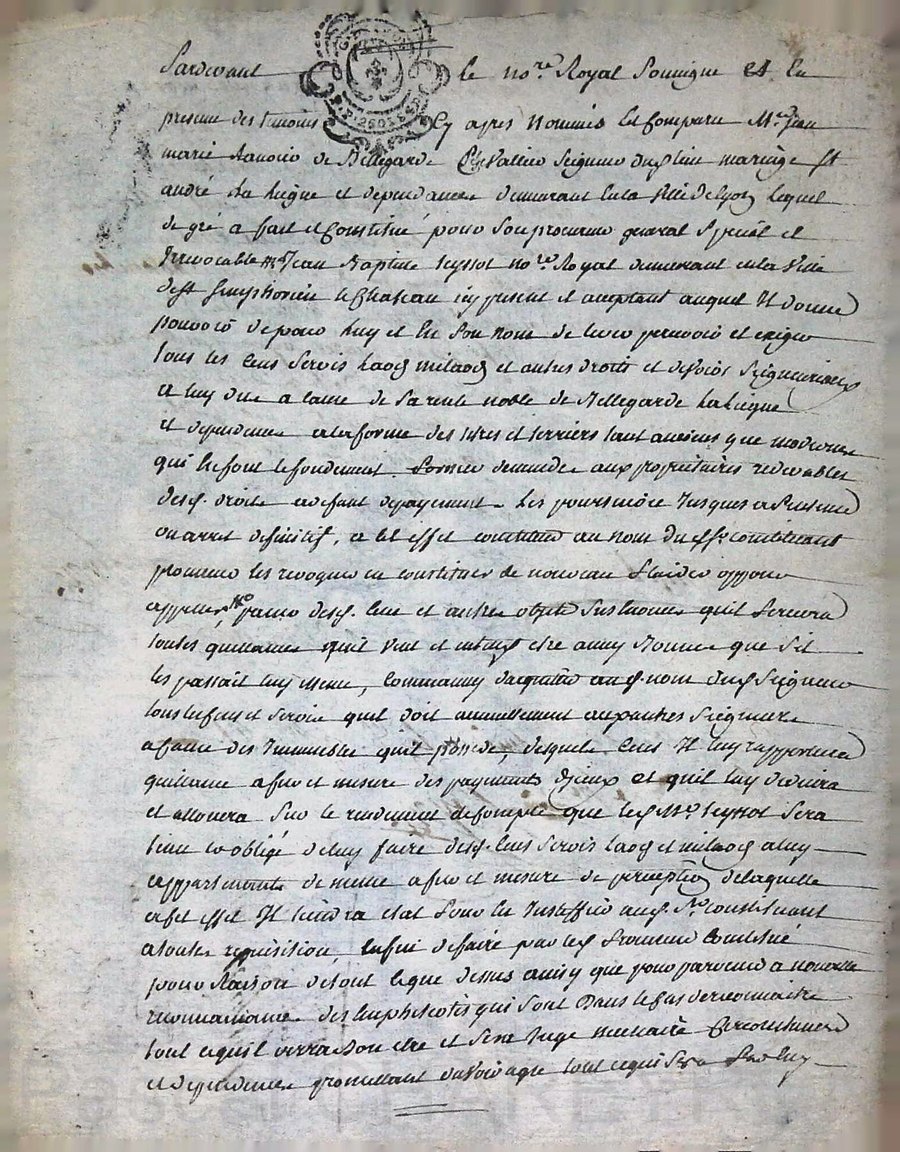 Pardevant le no.re Royal Soussigné et En
presence des temoins Cy apres Nommés Est Comparu M.re Jean
marie de Bellegarde Chevallier Seigneur mariage St
andré La hiegue et dependances demeurant En la Ville de Lyon Lequel
de gré a fait et Constitué pour Son procureur general Special et
Irrevocable M.e Jean Baptiste teyssot no.re Royal demeurant en la Ville
de St Simphorien le Chateau icy present et acceptant auquel Il donne
pouvoir de pour Luy et En Son Nom de lever percevoir et exiger
tous les Cens Servis Laods milaods et autres droits et devoirs Seigneuriaux
a luy dus a cause de Sa rente noble de Bellegarde La hiegue
et dependances a la forme des titres et terriers tant anciens que modernes
qui En font le fondement former demandes aux proprietaires redevables
desd. droits a deffaut de payement Les poursuivre Jusques a Sentence
ou arret definitif, a Cet effet constituer au nom dud. Sr. constituant
procureur les revoquer en constituer de nouveau plaider opposer
appeller, passer desd. Cens et autres objets quittances qu'il Signera
toutes quittances qu'il Veut et entend etre aussy Bonnes que S'il
les passait luy meme, Comme aussy d'acquitter aud. nom dud. Seigneur
tous les Cens et Servis quil doit annuellement aux autres Seigneurs
a cause des Immeubles qu'il possede, desquels Cens Il luy rapportera
quittance a fur et mesure des payements d'iceux et qu'il luy donnera
et allouera Sur le rendement de Compte que led. M.e teyssot Sera
tenu et obligé de luy faire desd. Cens Servis Laods et milaods a luy
appartenants de meme a fur et mesure de perception de laquelle
a Cet effet Il tiendra etat pour En Justiffier aud. Sr. constituant
a toutes requisition, Enfin de faire par led. Procureur Constitué
pour Raison de tout Ce que dessus aussy que pour parvenir a nouvelle
reconnaissance des Emphiteotes qui Sont Dans le Cas de reconnaitre
tout ce qu'il verra bon etre et Sera Jugé necessaire Circonstances
et dependances promettant d'avoir agreé tout ce qui Sera par luy